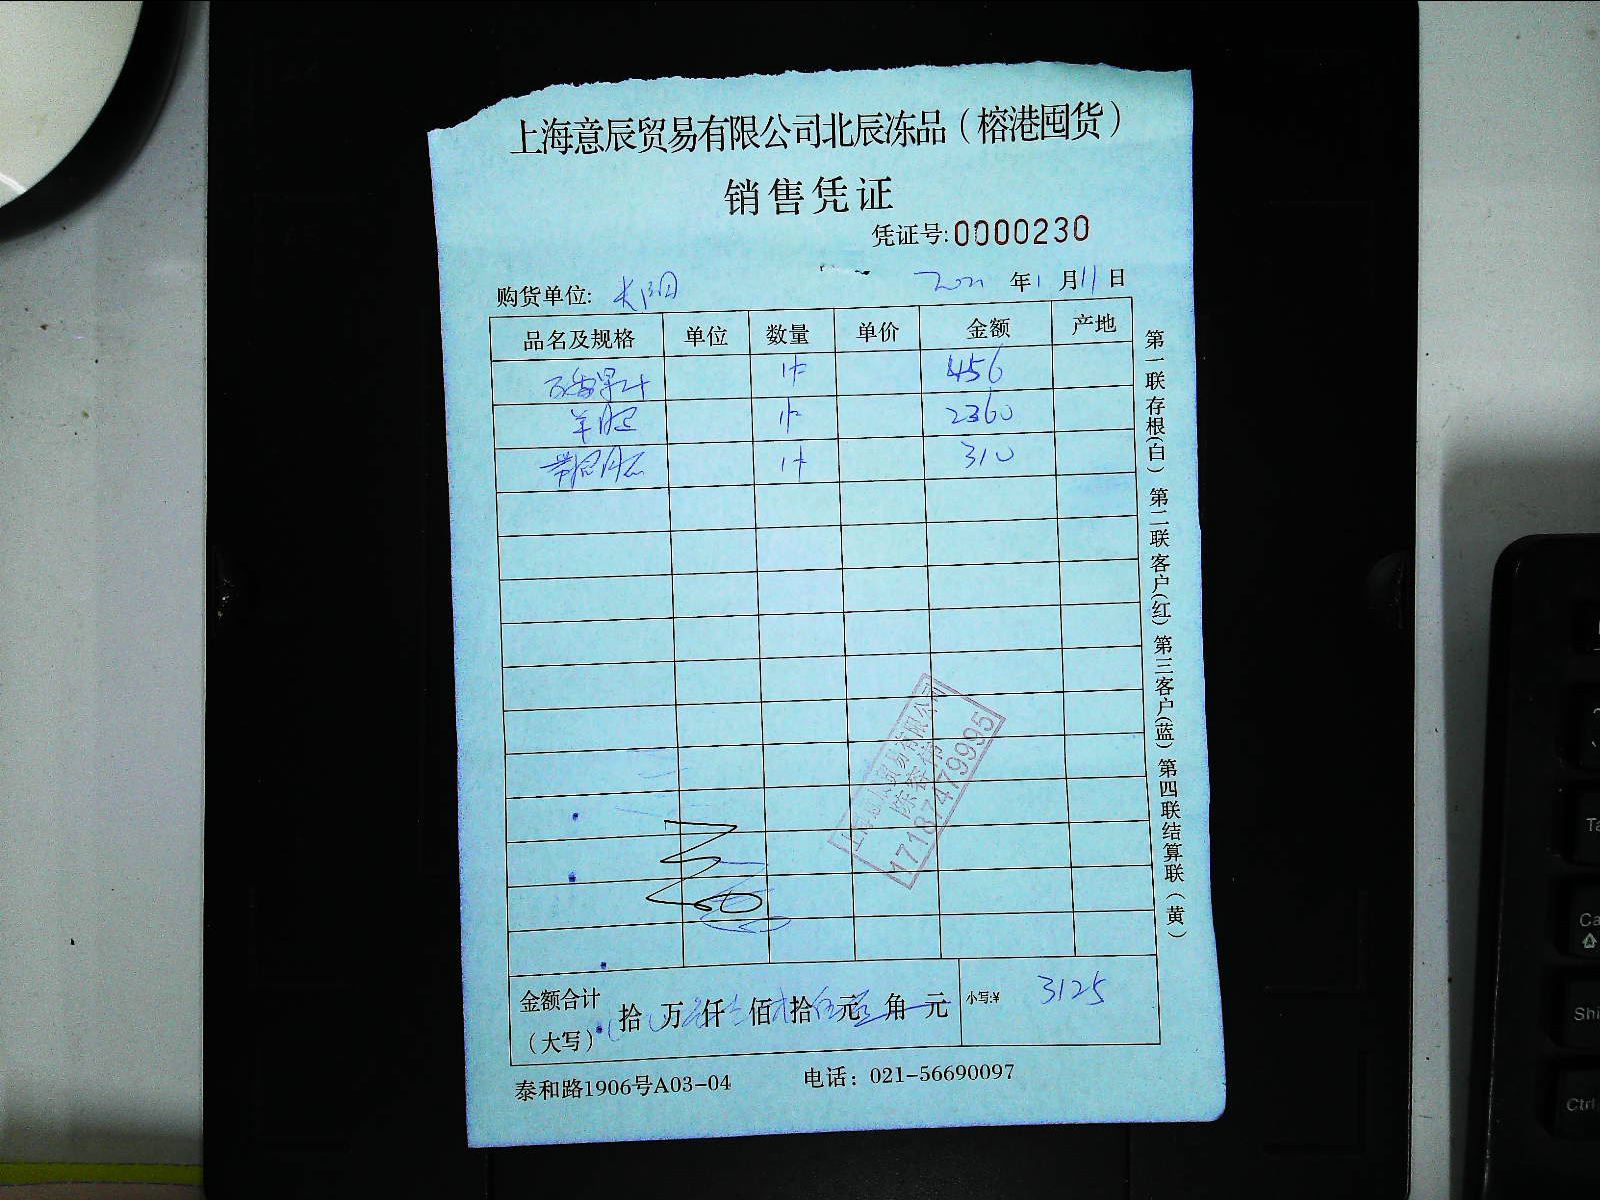 上海意辰贸易有限公司北辰冻品（榕港囤货）
销售凭证
凭证号:0000230
购货单位: 2021 年 1 月 11 日
品名及规格 单位 数量 单价 金额 产地
1件 456
羊 1件 2360
1件 310
第一联存根(白) 第二联客户(红) 第三客户(蓝) 第四联结算联(黄)
贸易有限公司
陈春伟
17187479995
金额合计（大写） 拾 万 仟 佰 拾 元 角 元 小写:¥ 3125
泰和路1906号A03-04 电话：021-56690097